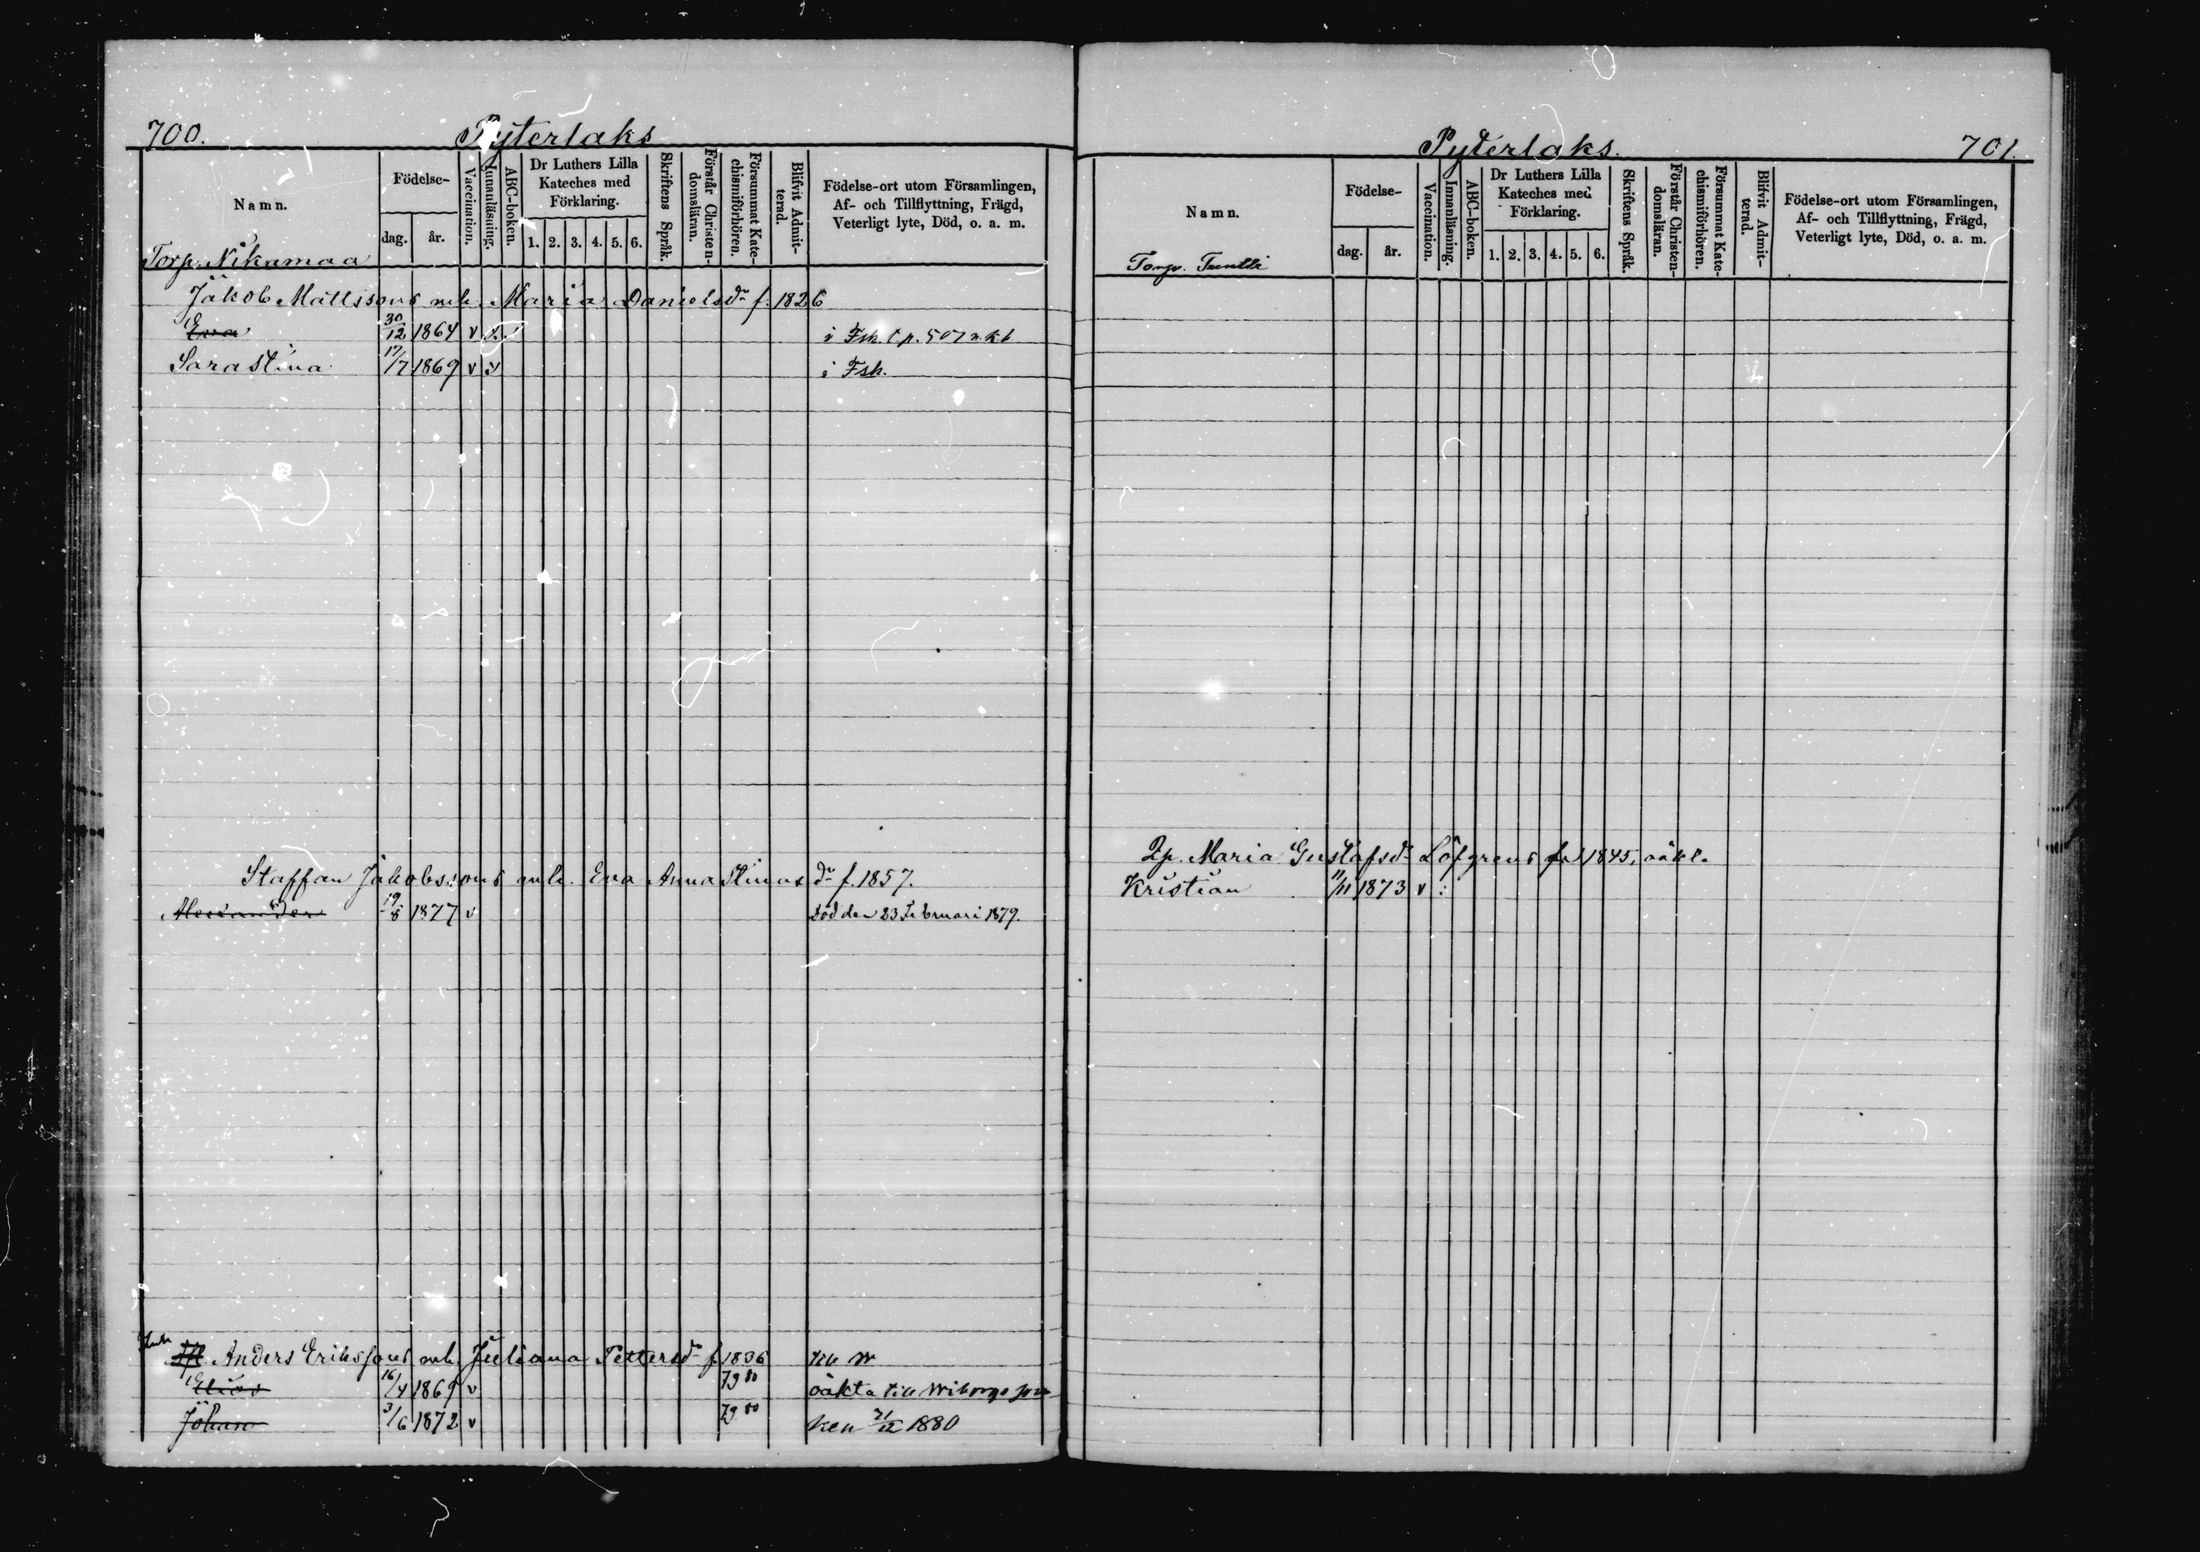 700.
Pyterlaks
Namn.
Födelse-
dag.
år.
Vaccination.
Innanläsning.
ABC-boken.
Dr Luthers Lilla
Kateches med
Förklaring.
1. 2. 3. 4. 5. 6.
Skriftens Språk.
Förstår Christen-
domsläran.
Försummat Kate-
chismiförhören.
Blifvit Admit-
terad.
Födelse-ort utom Församlingen,
Af- och Tillflyttning, Frägd,
Veterligt lyte, Död, o. a. m.
Torp. Nikamaa
Jakob Mattssons mh. Maria Danielsdr f. 1826
Eva 30/12 1864 v i Fsk. p. 507 n.k.b
Sara Stina 17/7 1869 v i Fsk.
Staffan Jakobssons mh. Eva Anna Stinas dr f. 1857.
Alexander 19/8 1877 v Död den 23 Februari 1879.
Anders Erikssons mh. Juliana Pettersdr f. 1836 till W
16/4 1869 v 79 80 oäkta till Wiborgs
Johan 3/6 1872 v 79 80 ken 21/12 1880
Pyterlaks.
701.
Namn.
Födelse-
dag.
år.
Vaccination.
Innanläsning.
ABC-boken.
Dr Luthers Lilla
Kateches med
Förklaring.
1. 2. 3. 4. 5. 6.
Skriftens Språk.
Förstår Christen-
domsläran.
Försummat Kate-
chismiförhören.
Blifvit Admit-
terad.
Födelse-ort utom Församlingen,
Af- och Tillflyttning, Frägd,
Veterligt lyte, Död, o. a. m.
Torp.
Maria Gustafsdr Löfgrens f. 1845, oäkt.
Kristian 11/11 1873 v :